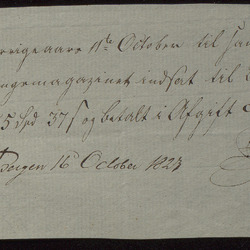 aars 11te October til
ngemagazinet indsat til
5 Spd 37 ß og betalt i Afgift
Bergen 16 October 1823